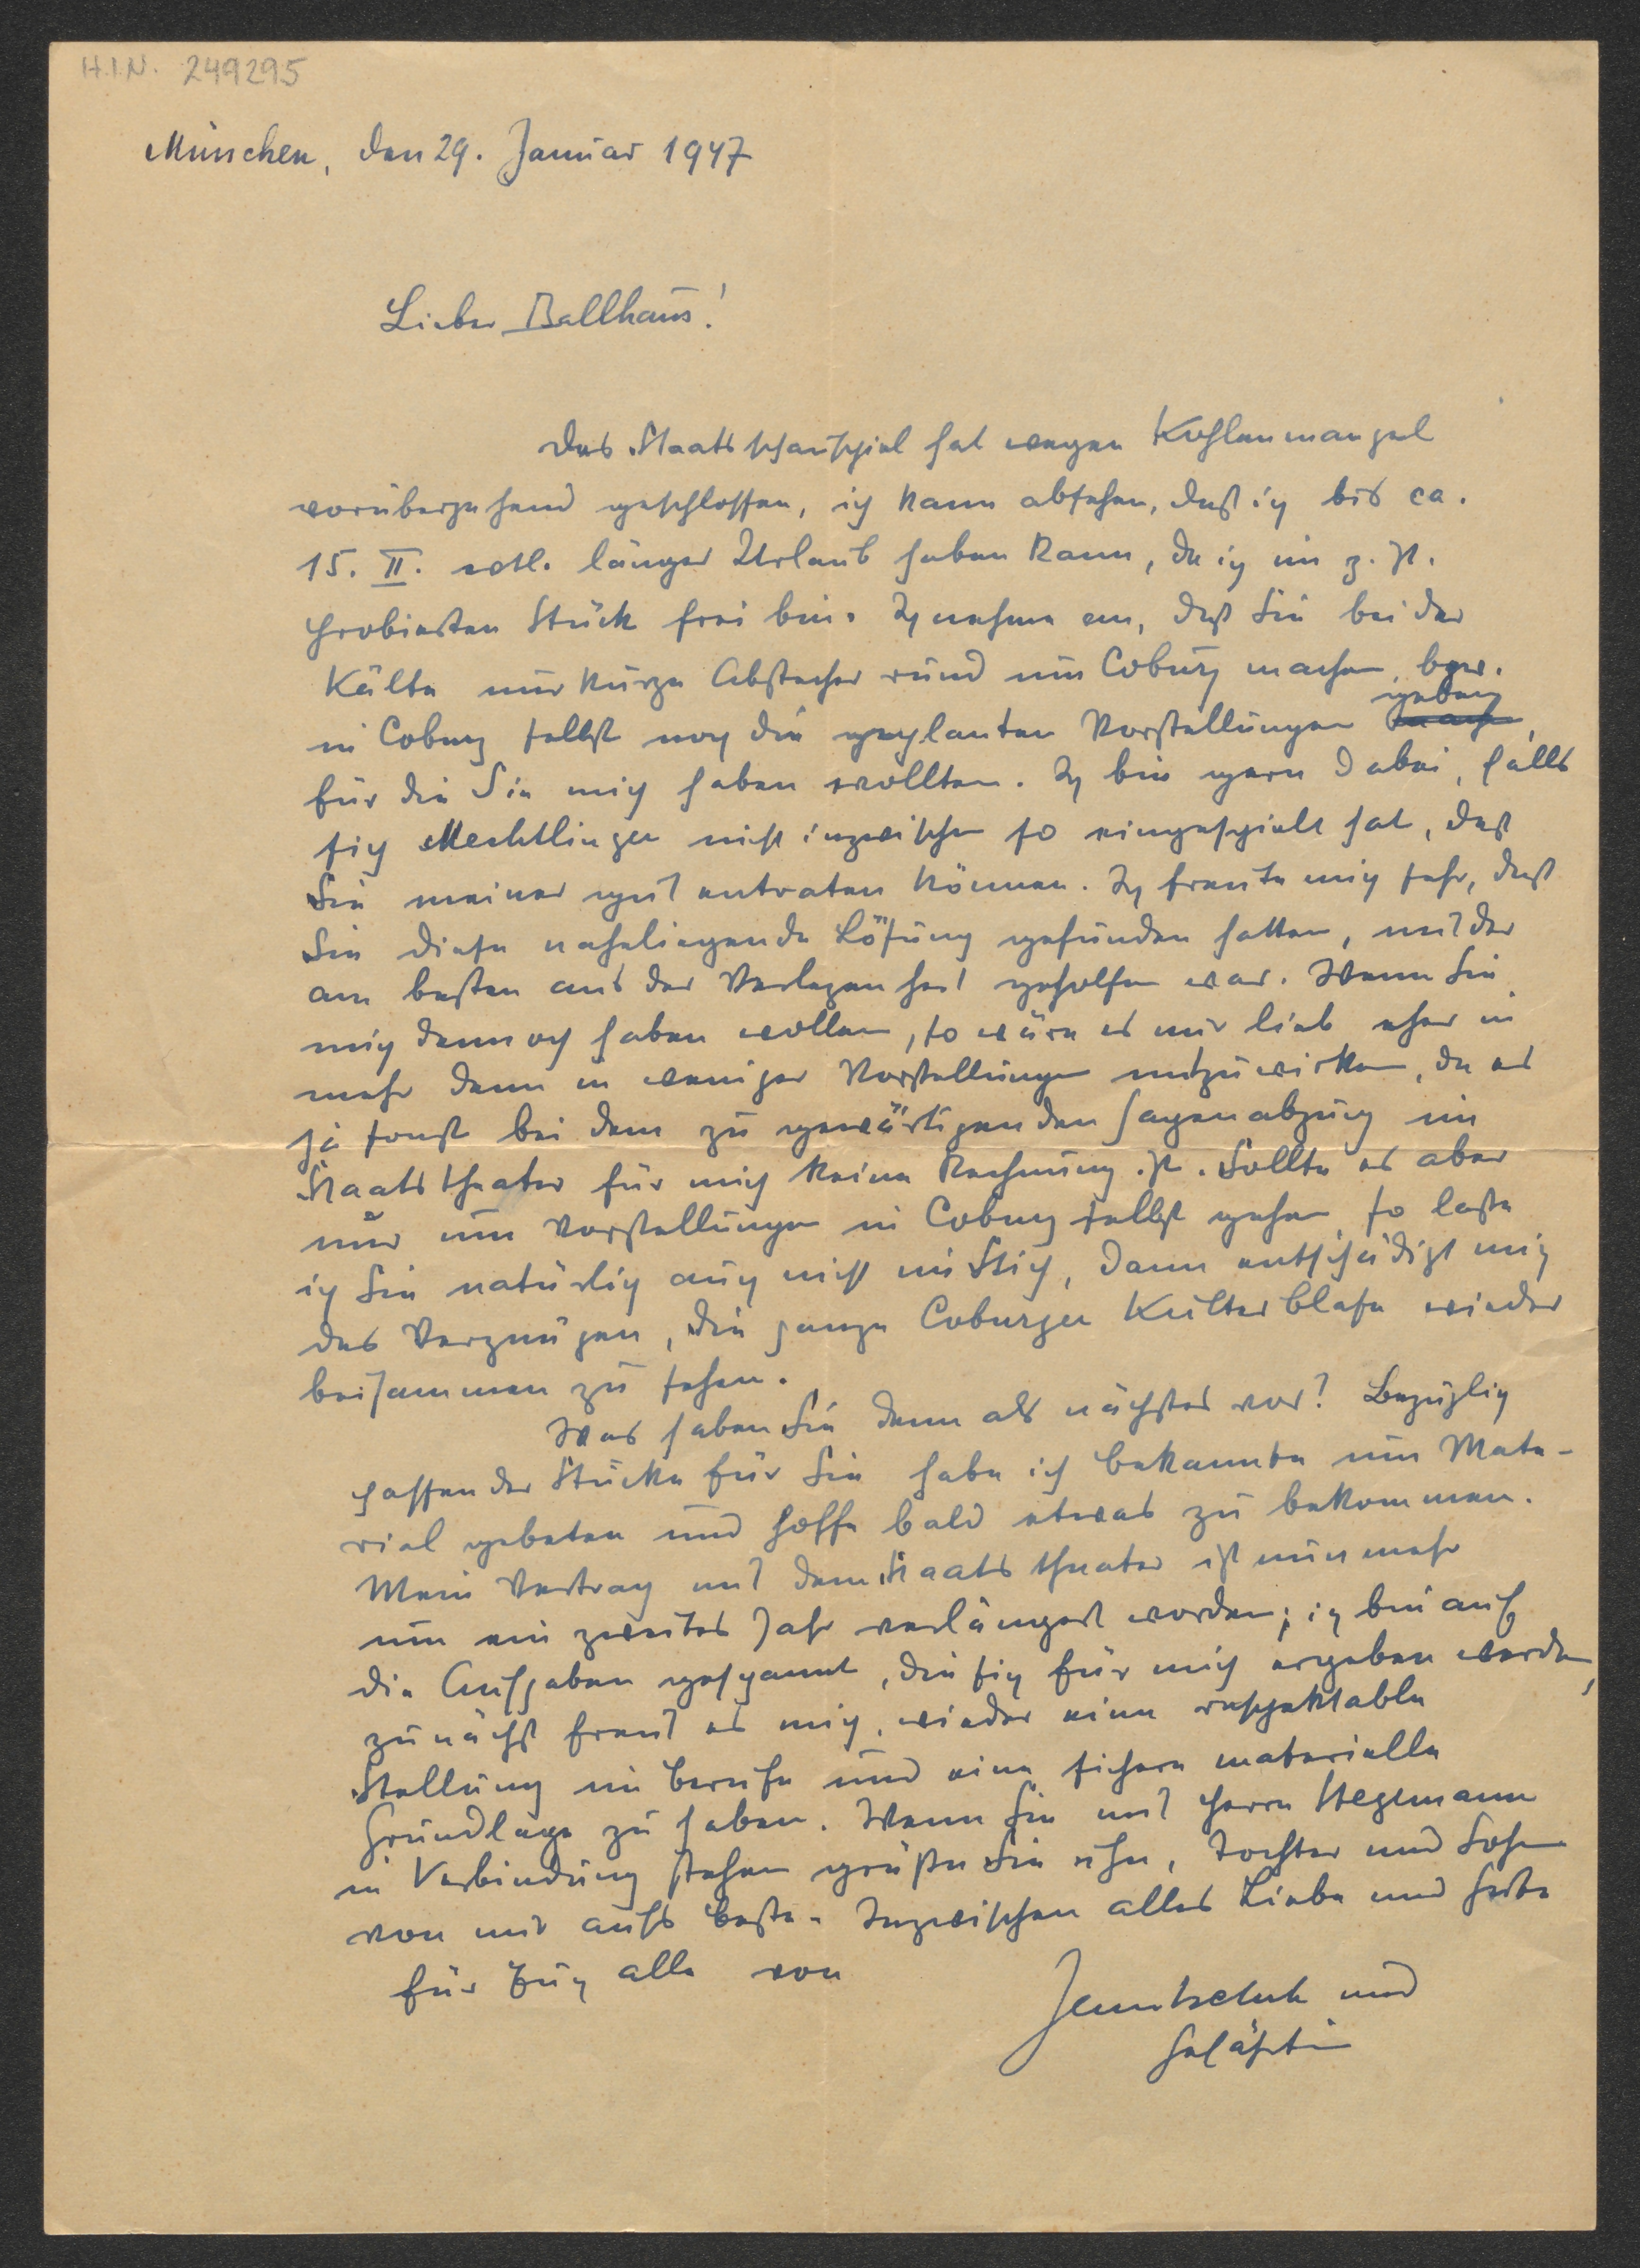 H.I.N. 249295
München, den 29. Januar 1947
Lieber Ballhaus!
Das Staatsschauspiel hat wegen Kohlenmangel
vorübergehend geschlossen, ich kann absehen, daß ich bis ca.
15. II. evtl. länger Urlaub haben kann, da ich im z. Zt.
probierten Stück frei bin. Ich nehme an, daß Sie bei der
Kälte nur kurze Abstecher rund um Coburg machen, bzw.
geben
in Coburg selbst noch die geplanten Vorstellungen
für die Sie mich haben wollten. Ich bin gern dabei, falls
sich Mechtlinger nicht inzwischen so eingespielt hat, daß
Sie meiner gut entraten können. Ich freute mich sehr, daß
Sie diese naheliegende Lösung gefunden hatten, mit der
am besten aus der Verlegenheit geholfen war. Wenn Sie
mich dennoch haben wollen, so wäre es mir lieb eher in
mehr denn in weniger Vorstellungen mitzuwirken, da es
ja sonst bei dem zu gewärtigenden Gagenabzug im
Staatstheater für mich keine Rechnung ist. Sollte es aber
nur um Vorstellungen in Coburg selbst gehen, so lasse
ich Sie natürlich auch nicht im Stich, dann entschädigt mich
das Vergnügen, die ganze Coburger Kulterblase wieder
beisammen zu sehen.
Was haben Sie denn als nächstes vor? Bezüglich
passender Stücke für Sie habe ich Bekannte um Mate-
rial gebeten und hoffe bald etwas zu bekommen.
Mein Vertrag mit dem Staatstheater ist nunmehr
um ein zweites Jahr verlängert worden; ich bin auf
die Aufgaben gespannt, die sich für mich ergeben werden,
zunächst freut es mich, wieder eine respektable
Stellung im Berufe und eine sichere materielle
Grundlage zu haben. Wenn Sie mit Herrn Hegemann
in Verbindung stehen grüßen Sie ihn, Tochter und Sohn
von mir aufs Beste. Inzwischen alles Liebe und Gute
für Euch alle von
und
Gefährtin